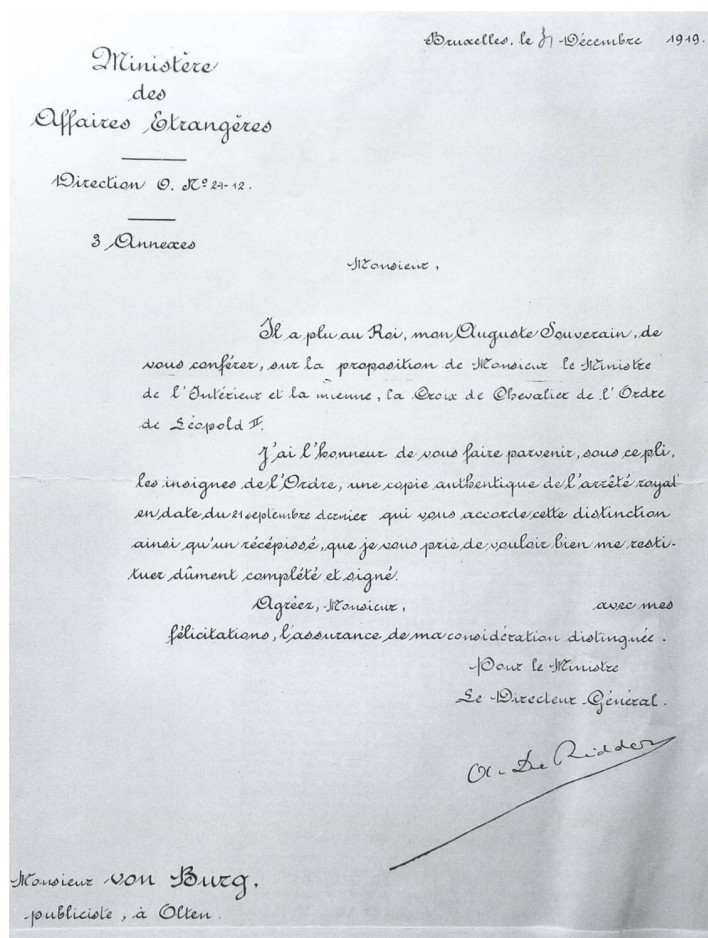 Bruxelles, le Décembre 1919.
Ministère
des
Affaires Etrangères
Direction O. Nº 24-12.
3 Annexes
Monsieur,
Il a plu au Roi, mon Auguste Souverain, de
vous conférer, sur la proposition de Monsieur le Ministre
de l'Intérieur et la mienne, la Croix de Chevalier de l'Ordre
de Léopold II.
J'ai l'honneur de vous faire parvenir, sous ce pli,
les insignes de l'Ordre, une copie authentique de l'arrêté royal
en date du 21 septembre dernier qui vous accorde cette distinction
ainsi qu'un récépissé, que je vous prie de vouloir bien me resti-
tuer dûment complété et signé.
Agréez, Monsieur, avec mes
félicitations, l'assurance de ma considération distinguée.
Pour le Ministre
Le Directeur Général.
A. De Ridder
Monsieur von Burg,
publiciste, à Olten.